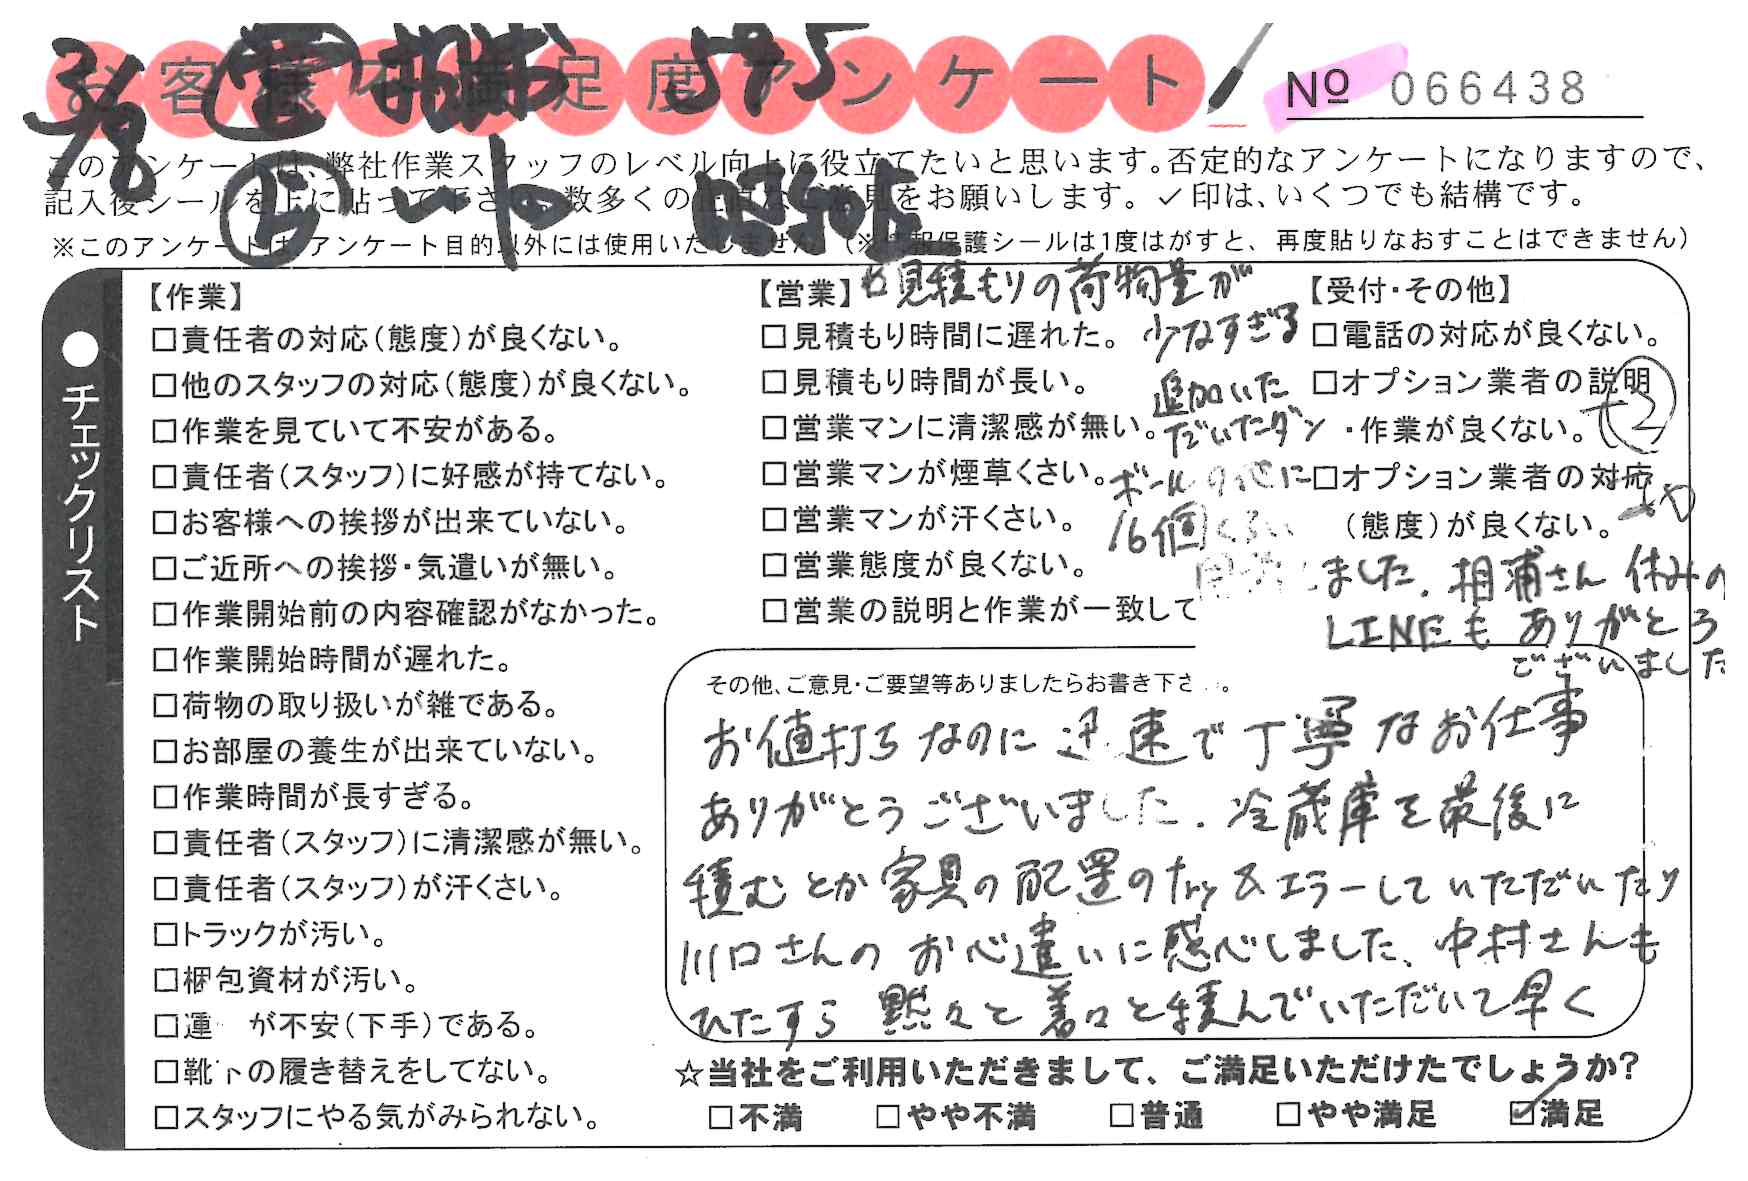 お客様不満足度アンケート
№ 066438
3/8 営 相浦 595
このアンケートは、弊社作業スタッフのレベル向上に役立てたいと思います。否定的なアンケートになりますので、
記入後シールを上に貼って下さい。数多くの正直なご意見をお願いします。✓印は、いくつでも結構です。
※このアンケートは、アンケート目的以外には使用いたしません。（※情報保護シールは1度はがすと、再度貼りなおすことはできません）
●チェックリスト
【作業】
□責任者の対応（態度）が良くない。
□他のスタッフの対応（態度）が良くない。
□作業を見ていて不安がある。
□責任者（スタッフ）に好感が持てない。
□お客様への挨拶が出来ていない。
□ご近所への挨拶・気遣いが無い。
□作業開始前の内容確認がなかった。
□作業開始時間が遅れた。
□荷物の取り扱いが雑である。
□お部屋の養生が出来ていない。
□作業時間が長すぎる。
□責任者（スタッフ）に清潔感が無い。
□責任者（スタッフ）が汗くさい。
□トラックが汚い。
□梱包資材が汚い。
□運 が不安（下手）である。
□靴下の履き替えをしてない。
□スタッフにやる気がみられない。
【営業】
□見積もり時間に遅れた。
□見積もり時間が長い。
□営業マンに清潔感が無い。
□営業マンが煙草くさい。
□営業マンが汗くさい。
□営業態度が良くない。
□営業の説明と作業が一致して
見積もりの荷物量が
少なすぎる
追加いた
だいたダン
ボールの他に
16個くらい
用意しました。相浦さん 休みの
LINEも ありがとう
ございました
【受付・その他】
□電話の対応が良くない。
□オプション業者の説明
・作業が良くない。
□オプション業者の対応
（態度）が良くない。
②
その他、ご意見・ご要望等ありましたらお書き下さ 。
お値打ちなのに 迅速で丁寧なお仕事
ありがとうございました. 冷蔵庫を最後に
積むとか家具の配置のトライ&エラーしていただいたり
川口さんの お心遣いに感心しました、中村さんも
ひたすら 黙々と着々と積んでいただいて早く
☆当社をご利用いただきまして、ご満足いただけたでしょうか？
□不満 □やや不満 □普通 □やや満足 ☑満足